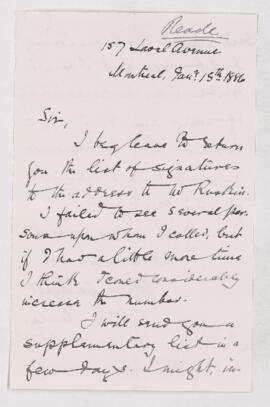 Reade
157 Laval Avenue
Montreal, Jany. 15th 1886
Sir,
I beg leave to return
you the list of signatures
to the address to Mr Ruskin.
I failed to see several per-
sons upon whom I called, but
if I had a little more time
I think I could considerably
increase the number.
I will send you a
supplementary list in a
few days. I might, in-